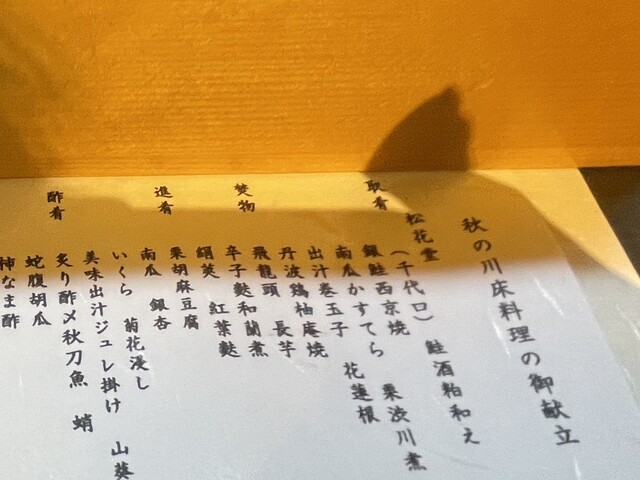 秋の川床料理の御献立
松花堂（千代口） 鮭酒粕和え
取肴 銀鮭西京焼 栗渋川煮
南瓜かすてら 花蓮根
出汁巻玉子
丹波鶏柚庵焼
焚物 飛龍頭 長芋
辛子麩和蘭煮
絹莢 紅葉麩
進肴 栗胡麻豆腐
南瓜 銀杏
いくら 菊花浸し
美味出汁ジュレ掛け 山葵
酢肴 炙り酢〆秋刀魚 蛸
蛇腹胡瓜
柿なま酢